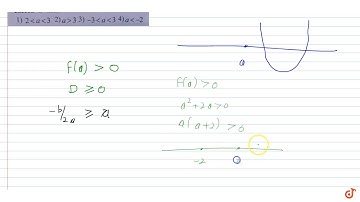 1) 2<a<3 2) a>3 3) -3<a<3 4) a<-2
f(a) > 0
D ≥ 0
-b/2a ≥ a
a
f(a) > 0
a² + 2a > 0
a(a+2) > 0
-2 0